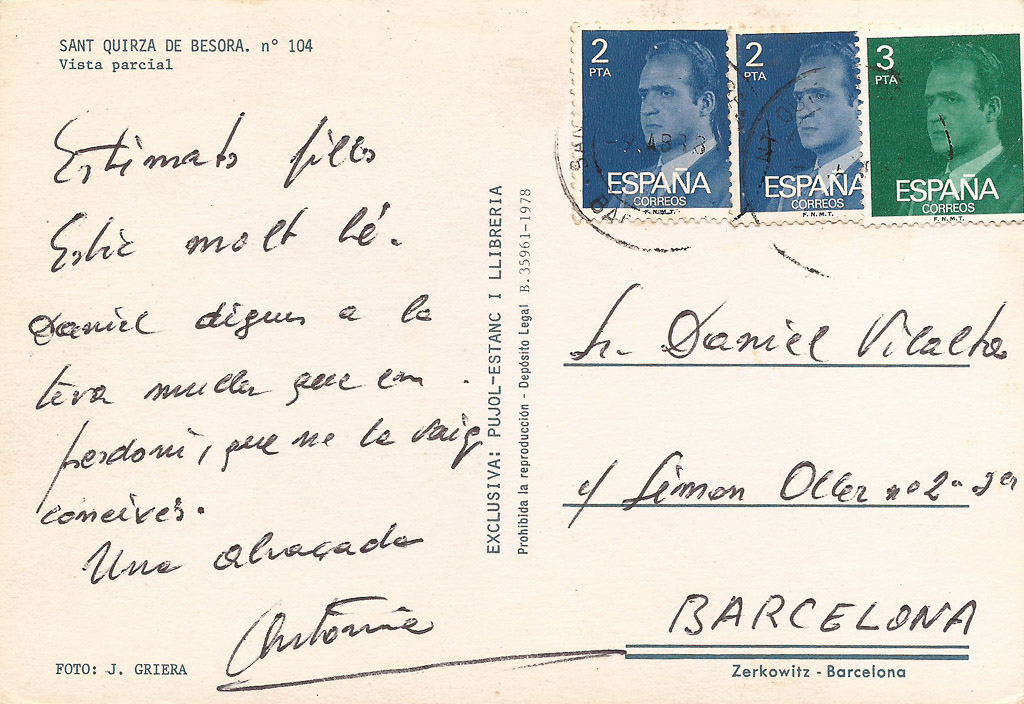 SANT QUIRZA DE BESORA. nº 104
Vista parcial
Estimats fills
Estic molt bé.
Daniel digues a la
teva muller que em
perdoni, que no la vaig
coneixes.
Una abraçada
Antònia
FOTO: J. GRIERA
EXCLUSIVA: PUJOL-ESTANC I LLIBRERIA
Prohibida la reproducción - Depósito Legal B. 35961-1978
2
PTA
ESPAÑA
CORREOS
F.N.M.T.
2
PTA
ESPAÑA
CORREOS
F.N.M.T.
3
PTA
ESPAÑA
CORREOS
F.N.M.T.
SAN
Sr. Daniel Vilalta
c/ Simon Oller nº 2 - 3er
BARCELONA
Zerkowitz - Barcelona